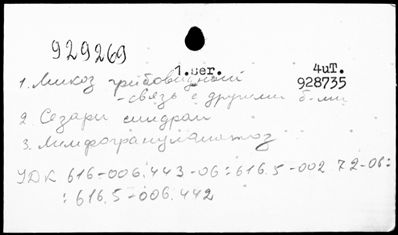 929269
1.ser. 4uT.
928735
1. Микоз грибовидный
- связь с другими б-ми
2. Сезари синдром
3. Лимфогрануломатоз
УДК 616-006.443-06:616.5-002.72-06:
:616.5-006.442